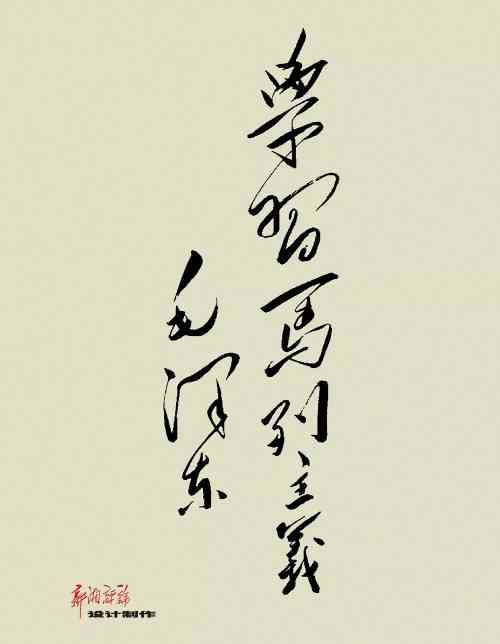 學習馬列主義
毛澤东
设计制作